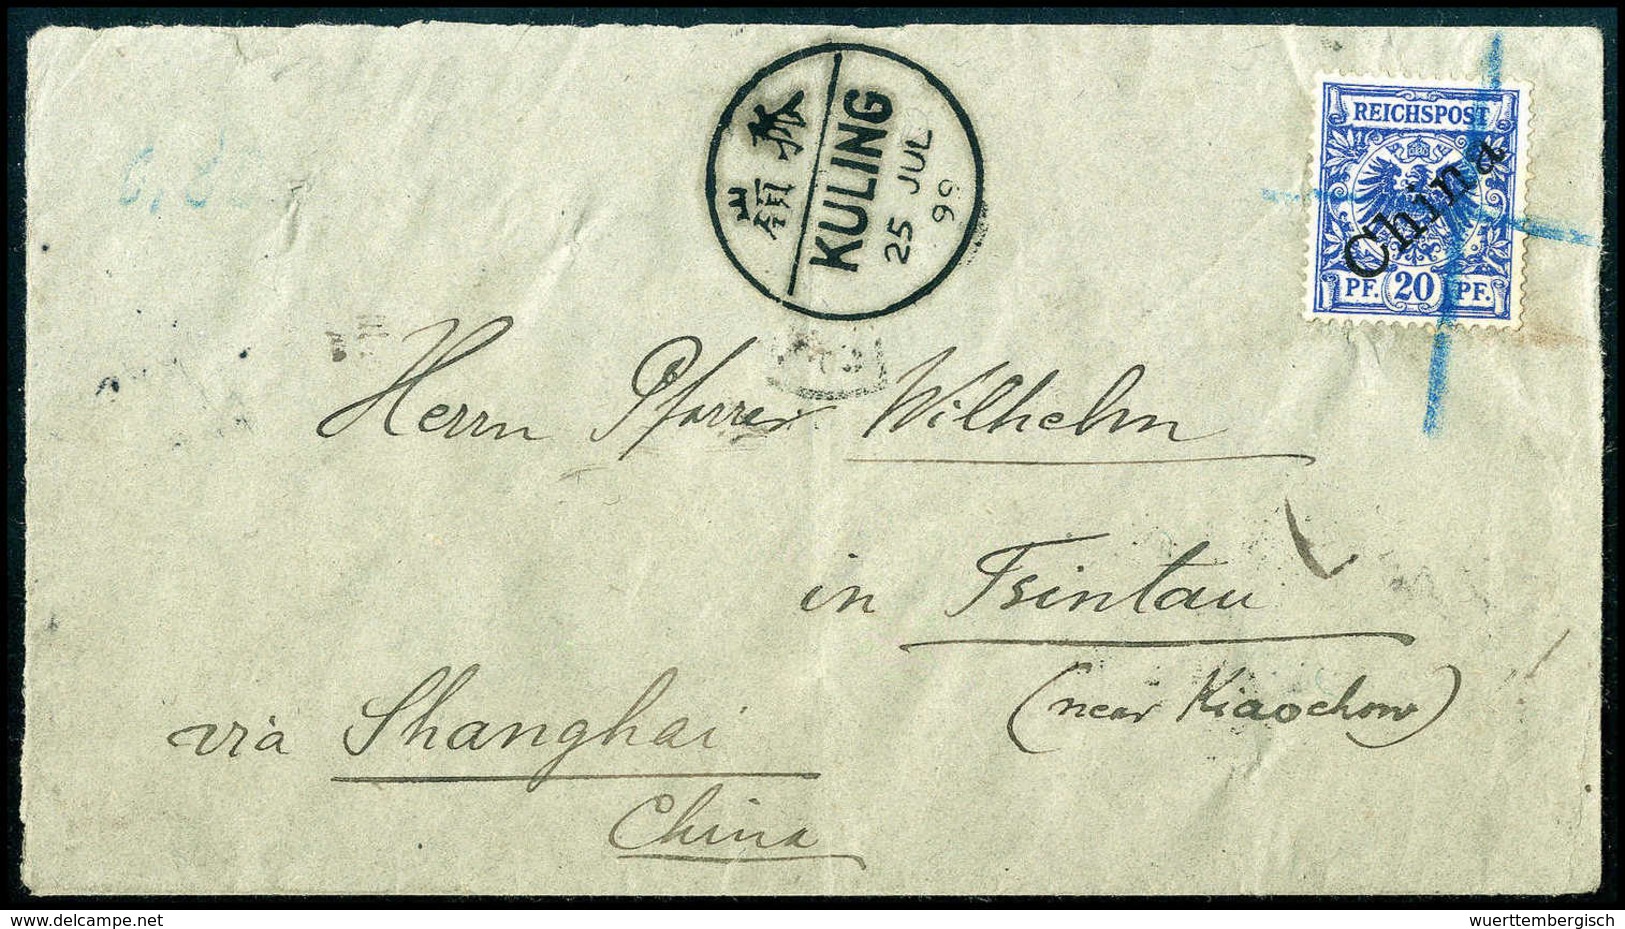 REICHSPOST
China
PF. 20 PF.
牯嶺
KULING
25 JUL
99
Herrn Pfarrer Wilhelm
in Tsintau
(near Kiaochow)
via Shanghai
China
delcampe.net
wuerttembergisch